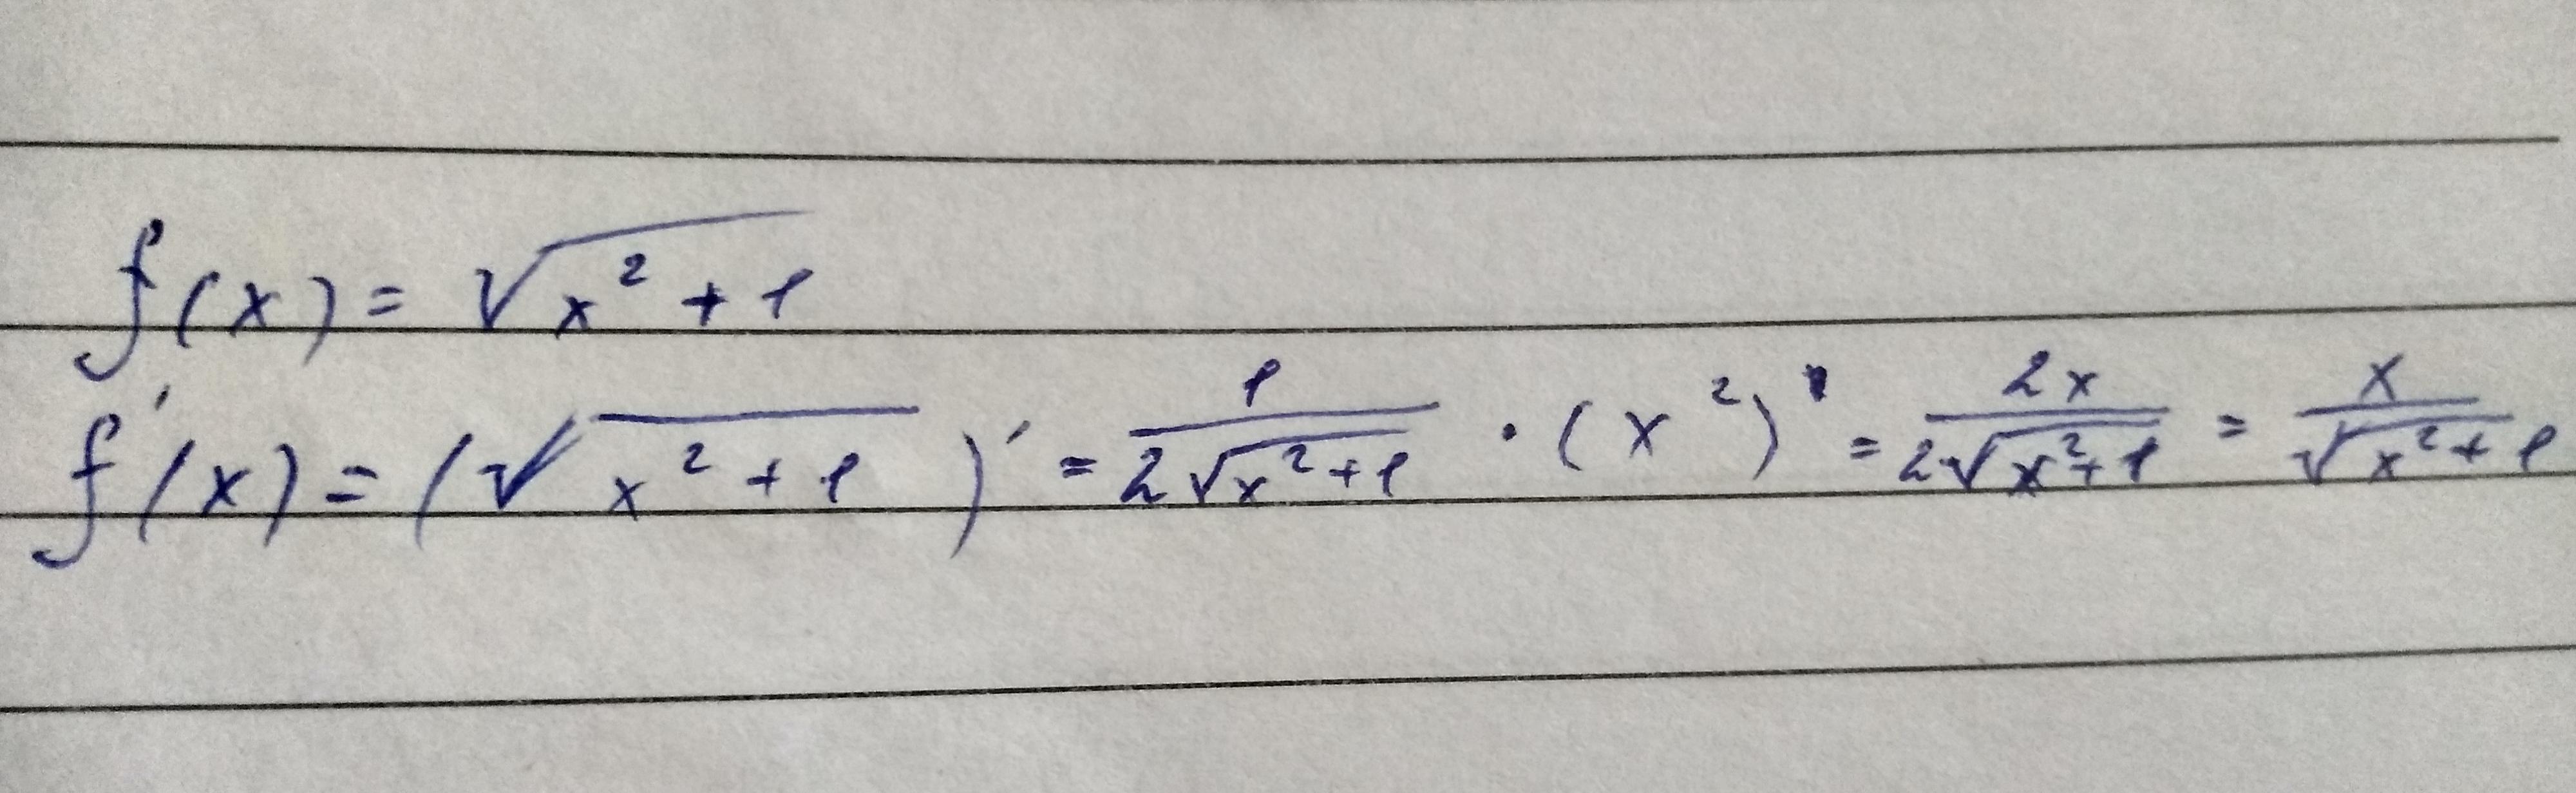 f(x) = √(x² + 1)
f'(x) = (√(x² + 1))' = 1/(2√(x² + 1)) · (x²)' = 2x/(2√(x² + 1)) = x/√(x² + 1)